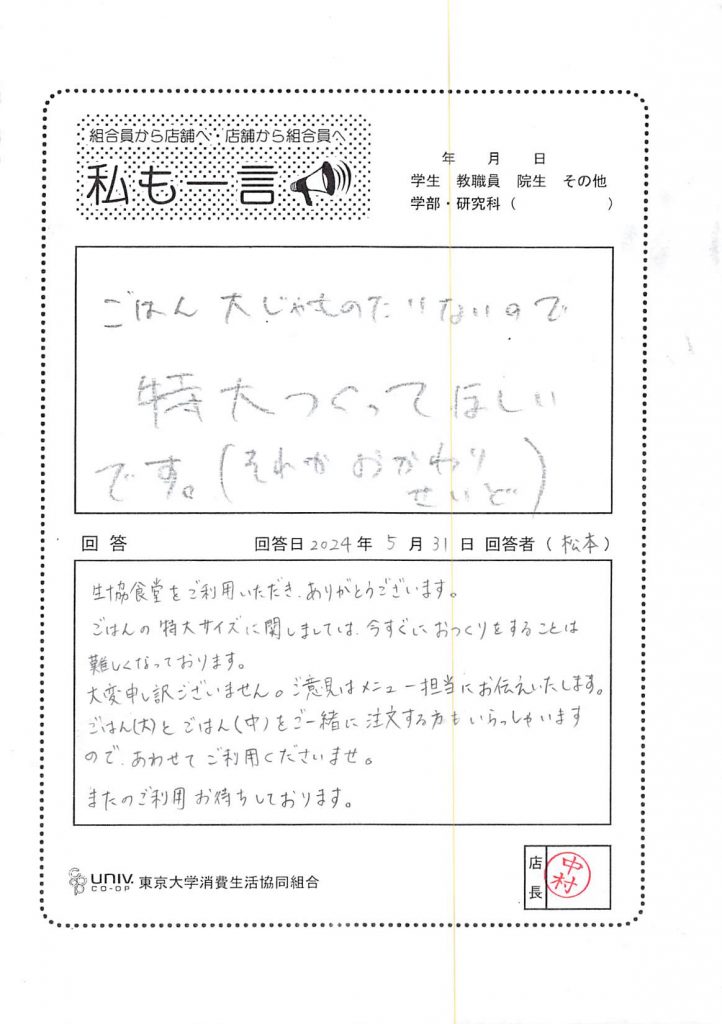 組合員から店舗へ・店舗から組合員へ
私も一言
年 月 日
学生 教職員 院生 その他
学部・研究科( )
ごはん 大じゃものたりないので
特大つくってほしい
です。(それかおかわり
せいど)
回答 回答日2024年5月31日 回答者(松本)
生協食堂をご利用いただき、ありがとうございます。
ごはんの特大サイズに関しましては、今すぐにおつくりをすることは
難しくなっております。
大変申し訳ございません。ご意見はメニュー担当にお伝えいたします。
ごはん(大)とごはん(中)をご一緒に注文する方もいらっしゃいます
ので、あわせてご利用くださいませ。
またのご利用お待ちしております。
UNIV. CO-OP 東京大学消費生活協同組合
店長 中村